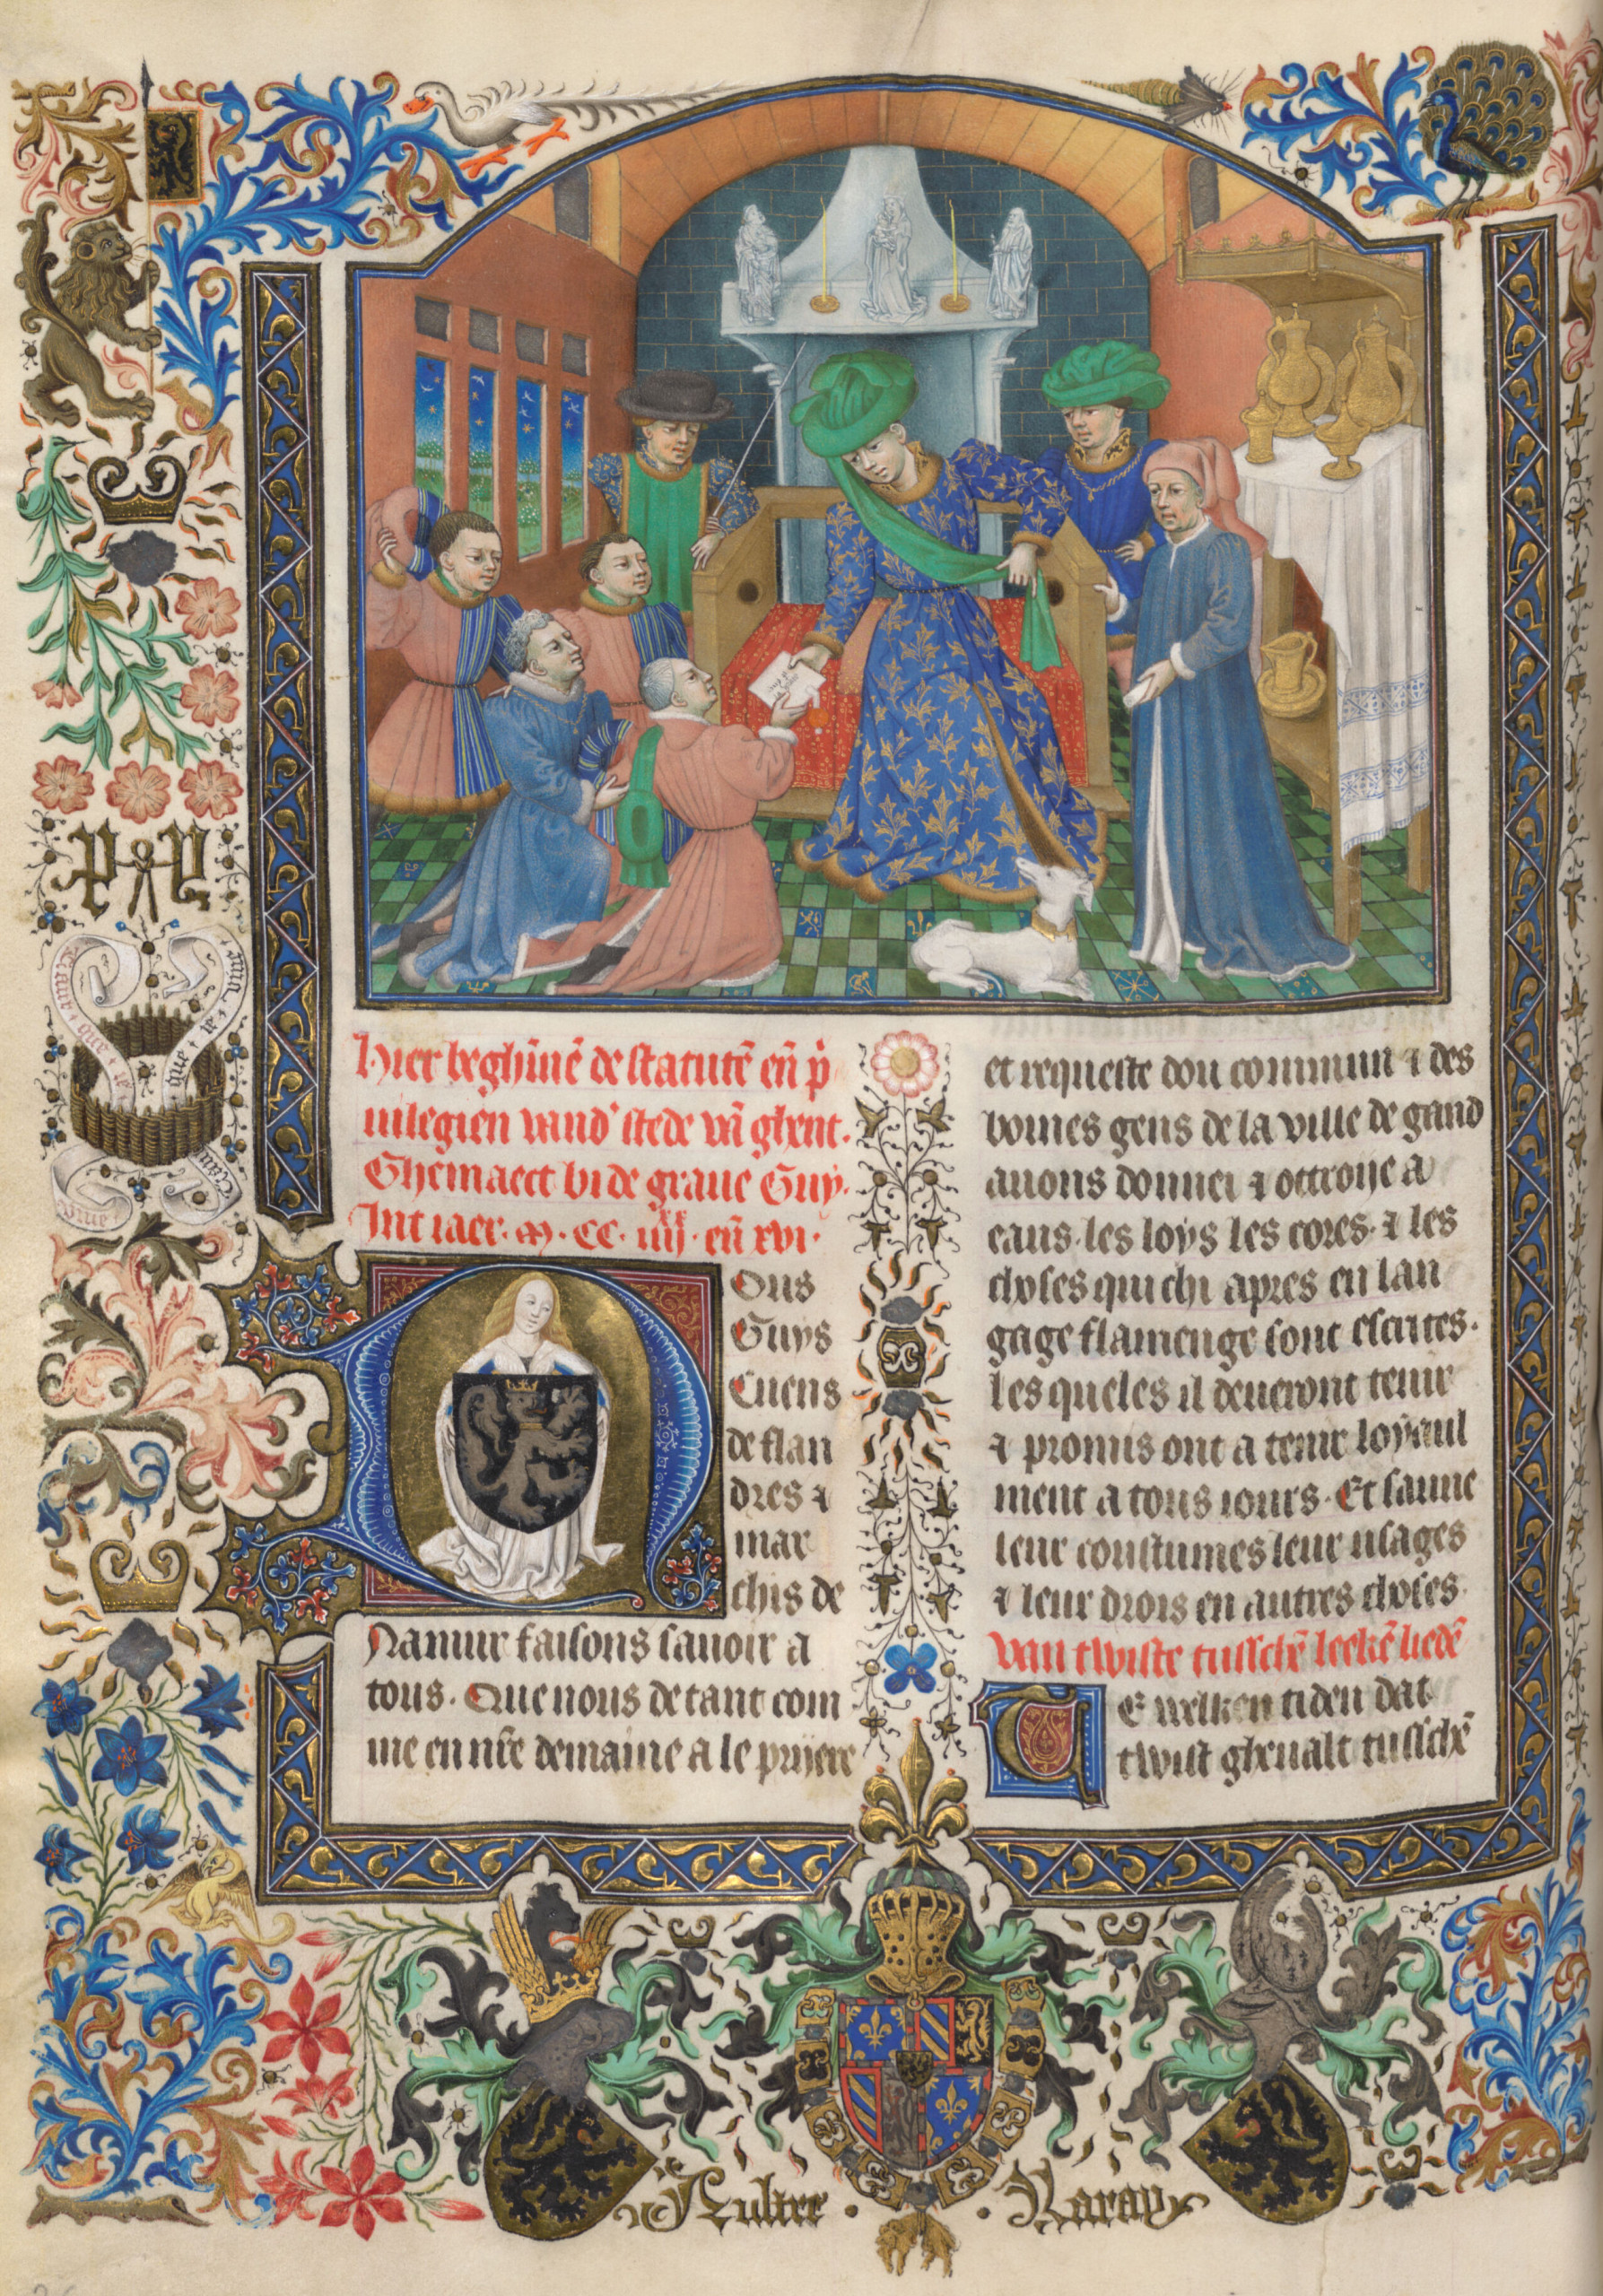 Hier beghīnē de statutē eñ p̉
uilegien vand' stede vā ghent.
Ghemaect bi de graue Guy.
Int iaer. m. CC. iiii. eñ xvi.
xx
Ous
Guys
Cuens
de flan
dres ⁊
mar
chis de
Namur faisons sauoir a
tous. Que nous de tant com
me en nr̄e demaine a le pryere
et requeste dou commun ⁊ des
boines gens de la ville de gand
auons donnei ⁊ ottroye a
eaus. les loys les cores. ⁊ les
choses qui chi apres en lan
gage flamenge sont escrites.
les queles il deueront tenir
⁊ promis ont a tenir loyaul
ment a tous iours. Et sauue
leur coustumes leur usages
⁊ leur drois en autres choses.
Van twiste tusschē leekē liedē
Te welken tiden dat
twist gheualt tusschē
Aultre . . Naray